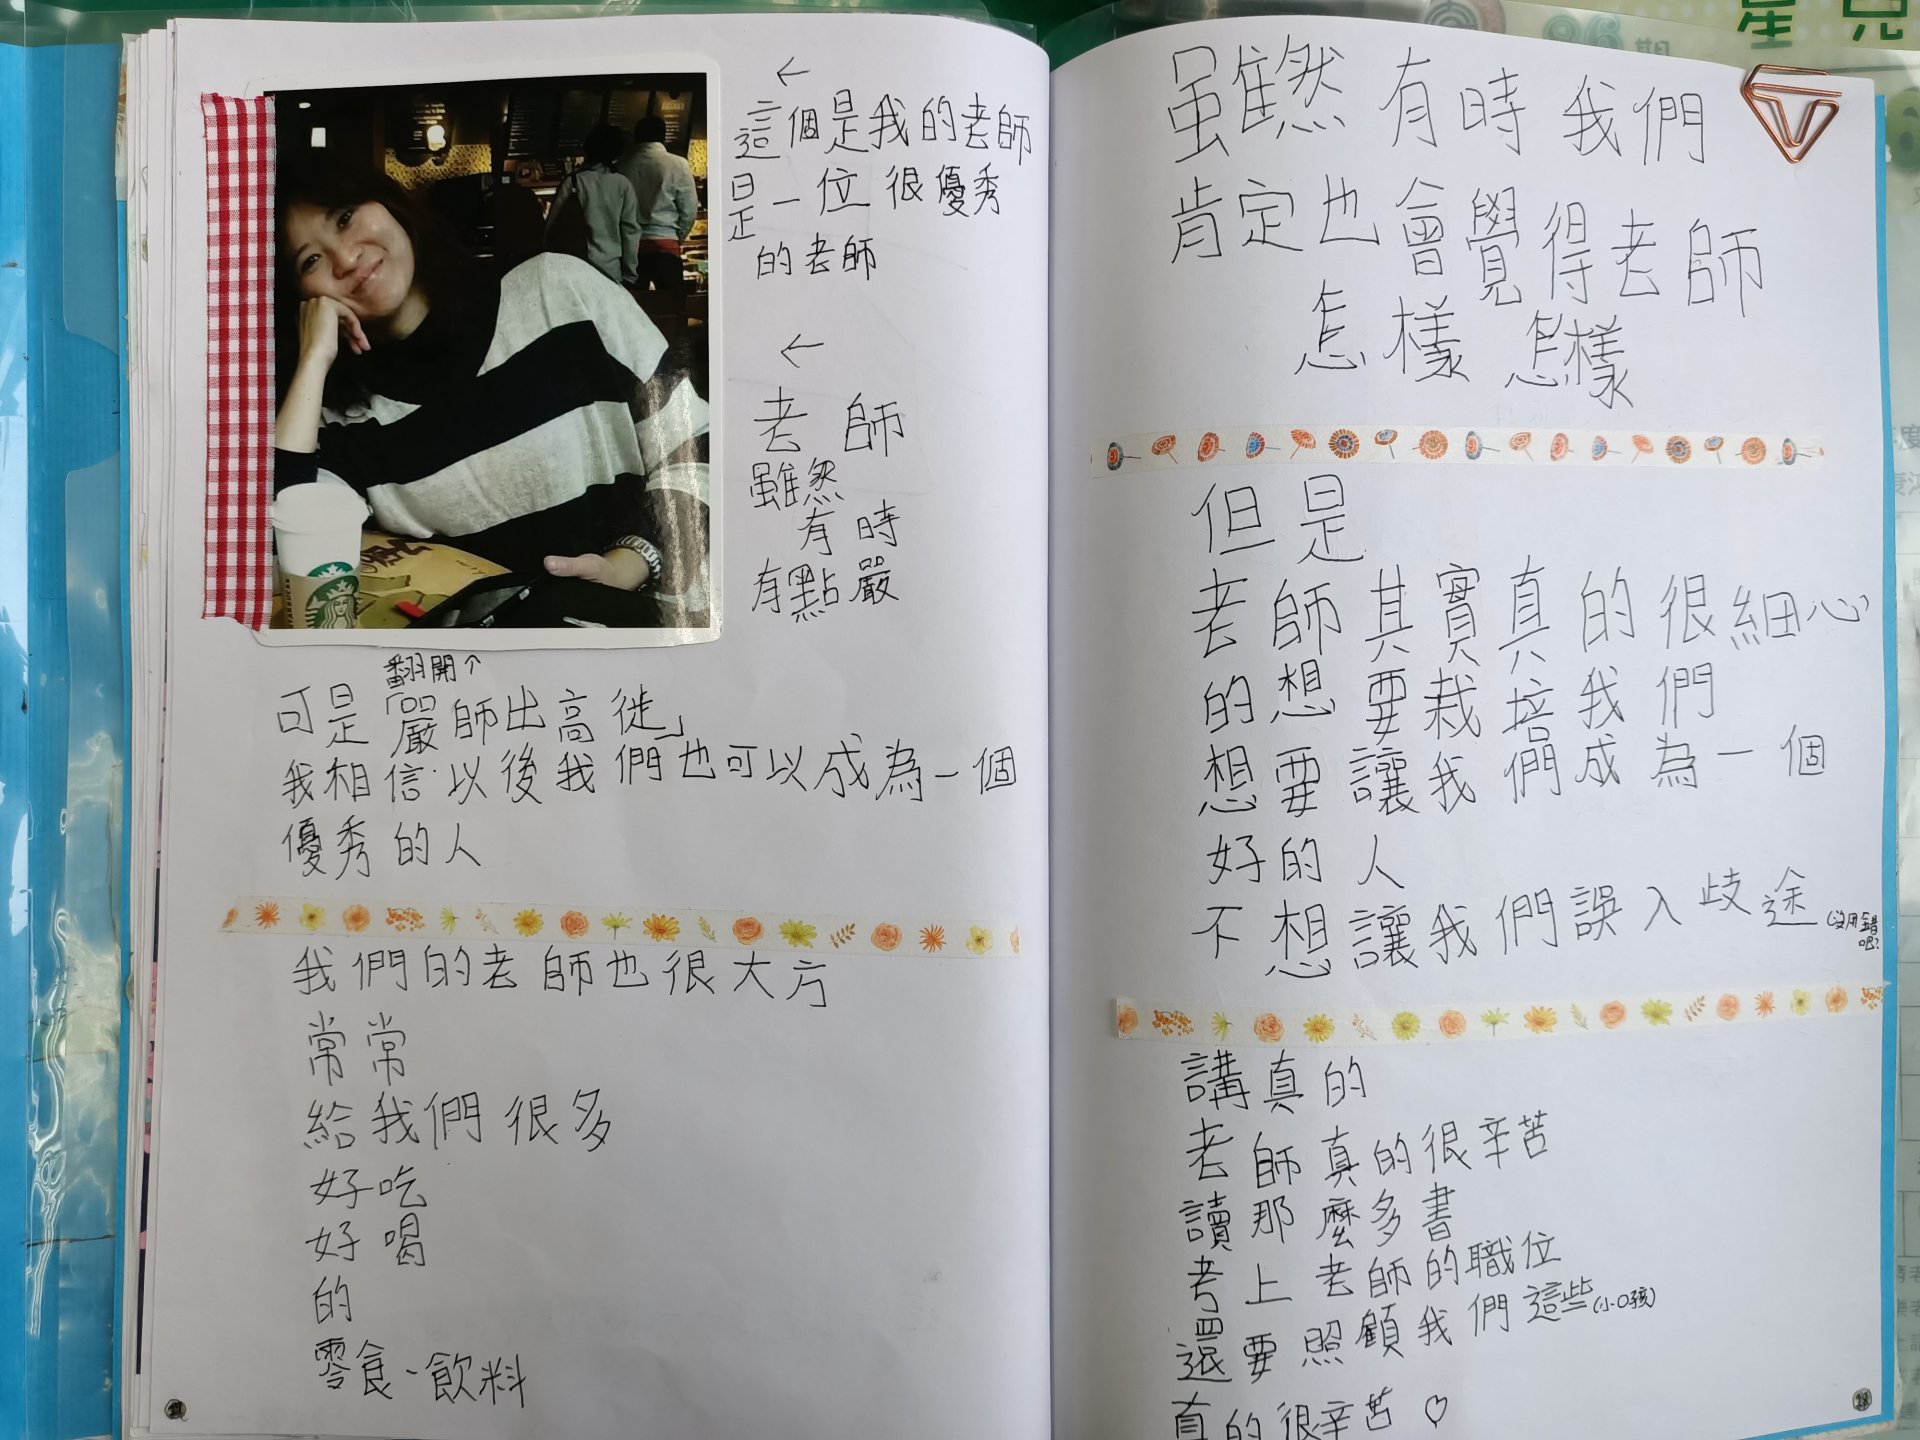 ←
這個是我的老師
是一位很優秀
的老師
←
老師
雖然
有時
有點嚴
翻開↑
可是「嚴師出高徒」
我相信以後我們也可以成為一個
優秀的人
我們的老師也很大方
常常
給我們很多
好吃
好喝
的
零食、飲料
雖然有時我們
肯定也會覺得老師
怎樣怎樣
但是
老師其實真的很細心
的想要栽培我們
想要讓我們成為一個
好的人
不想讓我們誤入歧途(沒用錯
吧?
講真的
老師真的很辛苦
讀那麼多書
考上老師的職位
還要照顧我們這些(小孩)
真的很辛苦♡